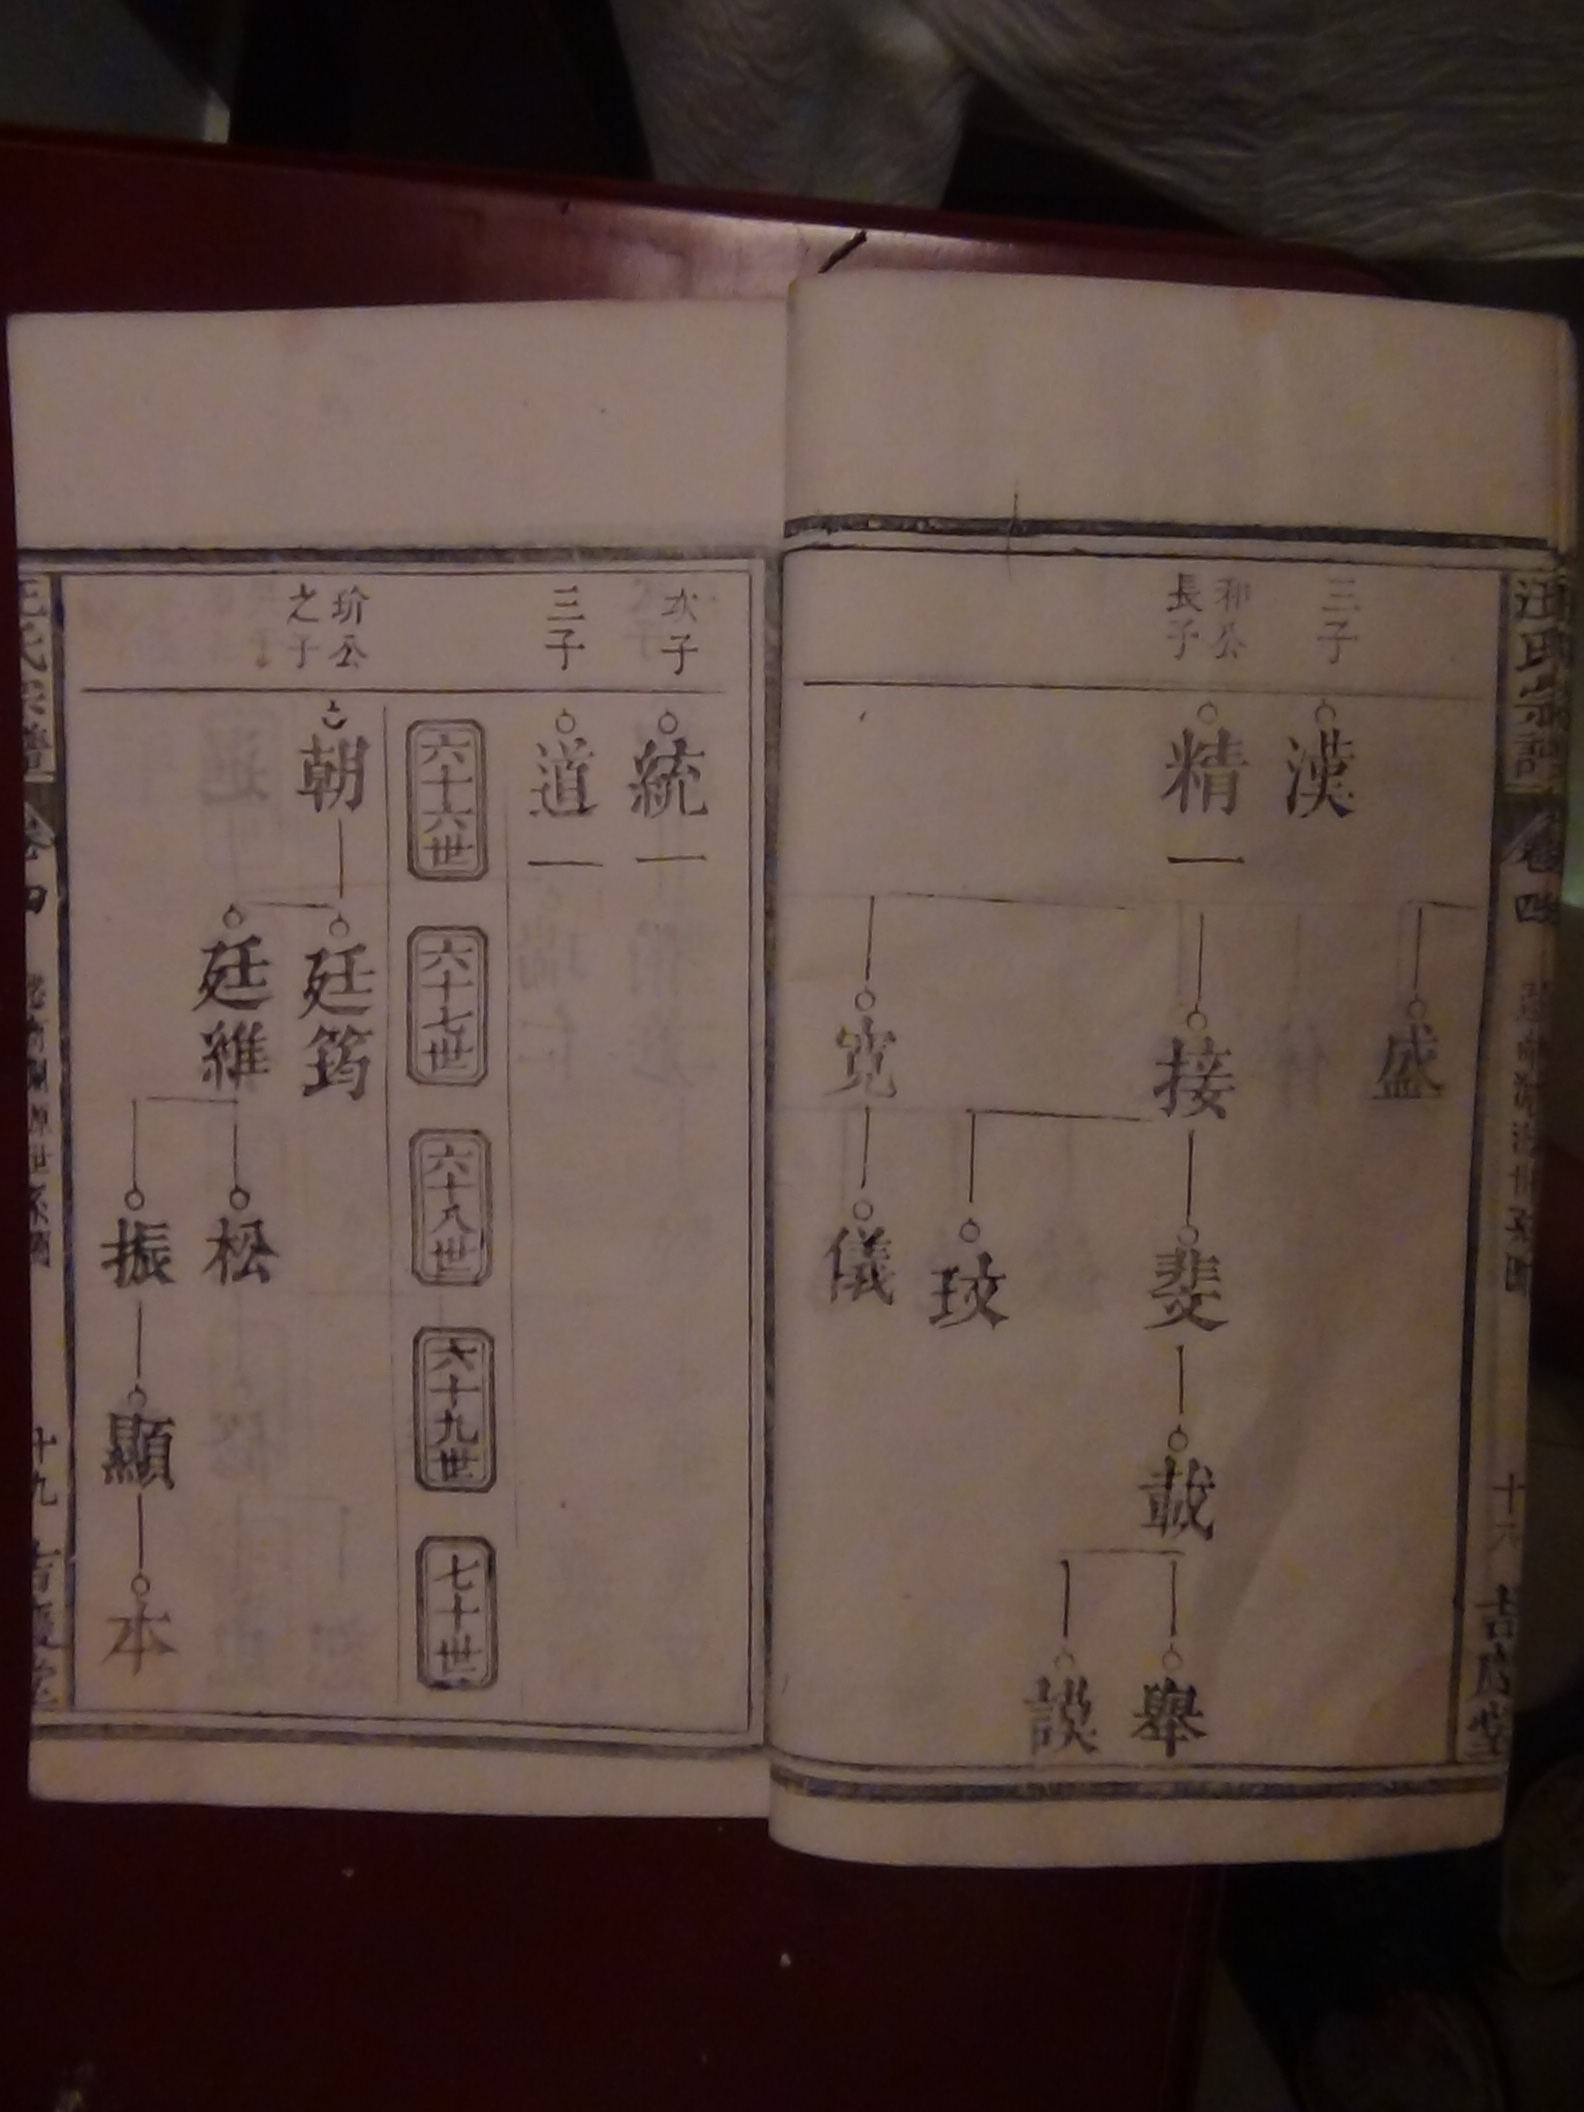 汪氏宗譜
卷四
十八
吉慶堂
三子
漢
盛
和公
長子
精一
接
斐
載
舉
談
玟
寬
儀
次子
統一
三子
道一
六十六世
六十七世
六十八世
六十九世
七十世
玠公
之子
朝
廷筠
廷維
松
振
顯
本
汪氏宗譜
卷四
十九
吉慶堂